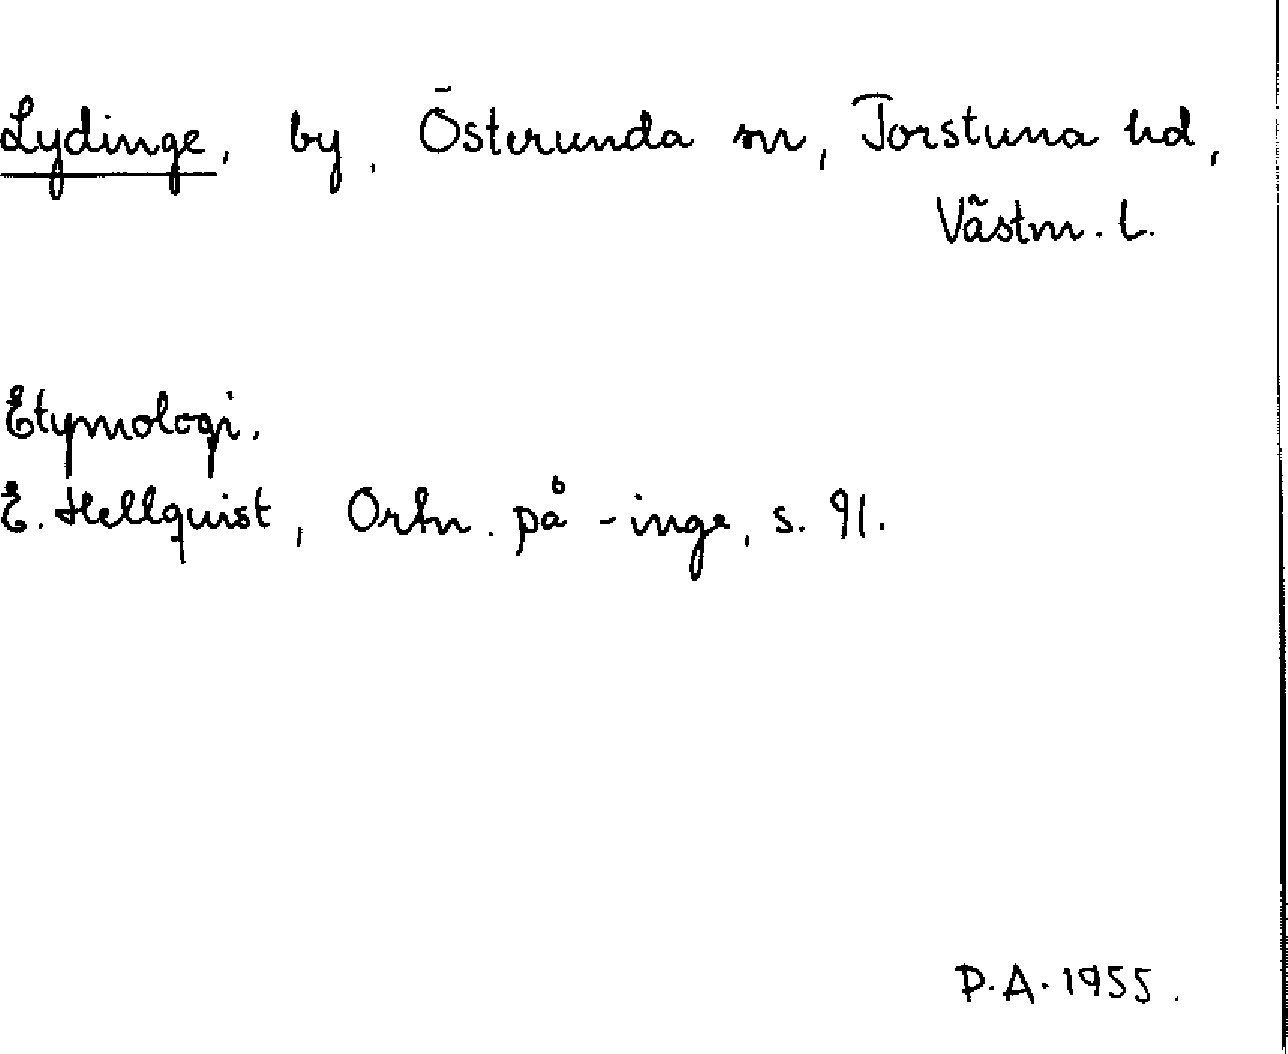 Lydinge, by, Österunda sn, Torstuna hd,
Västm. l.
Etymologi.
E. Hellquist, Ortn. på -inge, s. 91.
P.A. 1955.